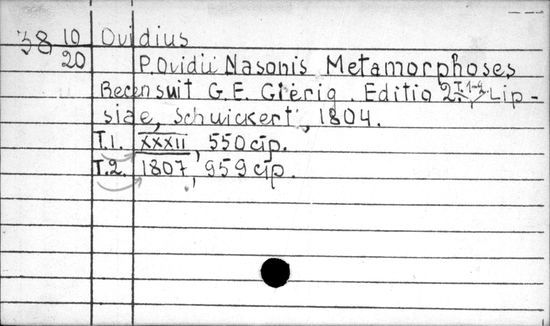 38 10 Ovidius
20 P. Ovidii Nasonis Metamorphoses
Recensuit G. E. Gierig. Editio 2. T. 1-2. Lip-
siae, Schwickert, 1804.
T.1. XXXII, 550 cip.
T.2. 1807, 959 cip.